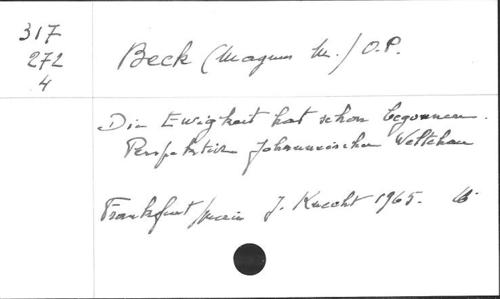 317
272
4
Beck (Magnus M.) O.P.
Die Ewigkeit hat schon begonnen.
Perspektive Johanneischer Weltschau
Frankfurt/Main J. Knecht 1965.